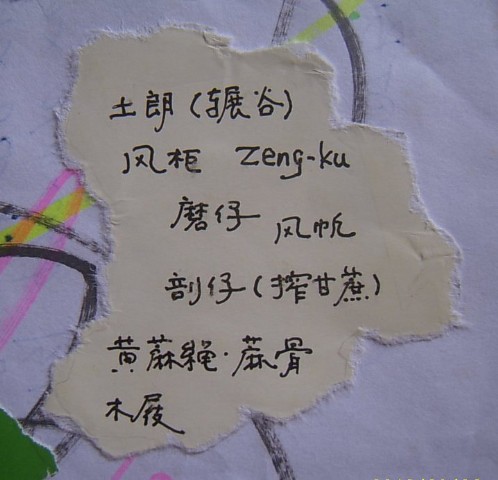 土朗（辗谷）
风柜 Zeng-ku
磨仔 风帆
剖仔（搾甘蔗）
黄蔴繩·蔴骨
木屐